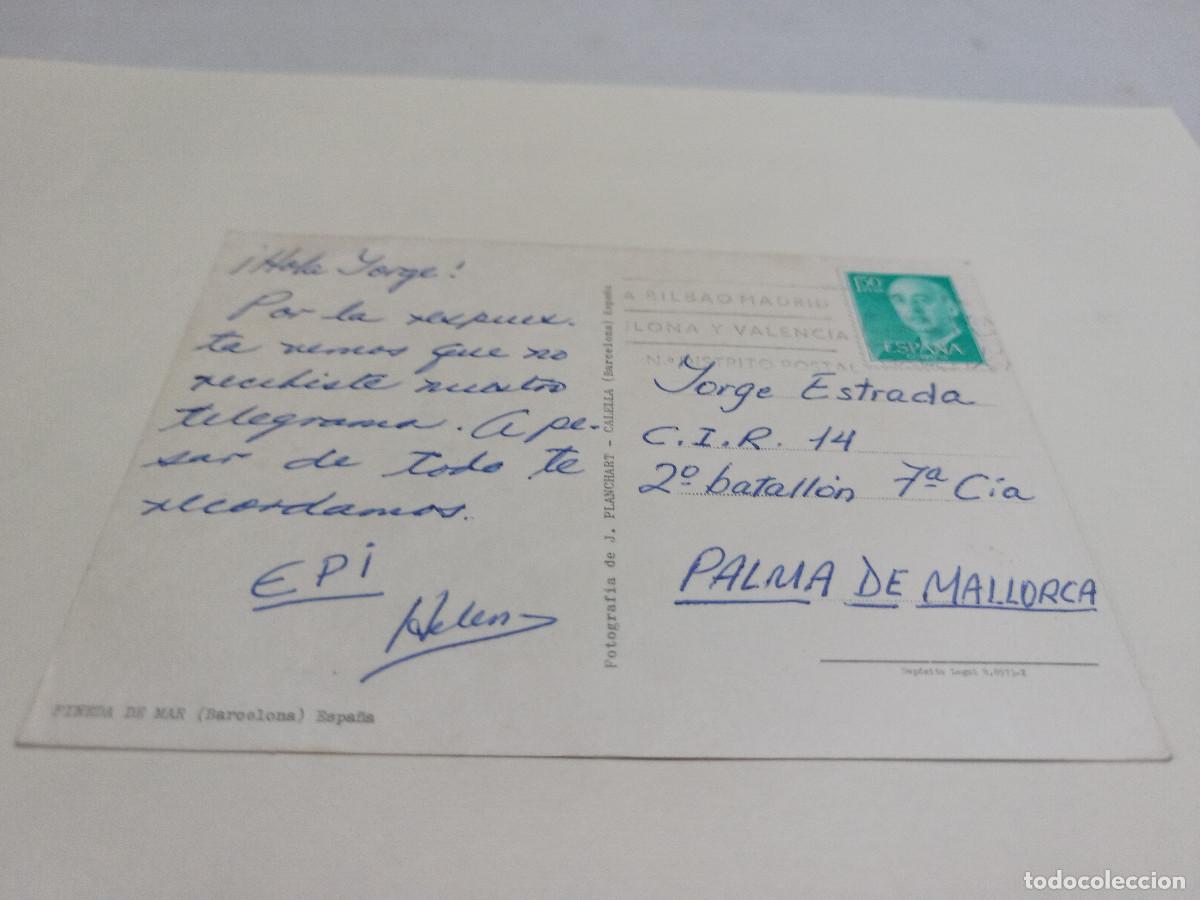 ¡Hola Jorge!
Por la respues.
ta vemos que no
recibiste nuestro
telegrama. A pe-
sar de todo te
recordamos.
EPI
Helen
PINEDA DE MAR (Barcelona) España
Fotografía de J. PLANCHART - CALELLA (Barcelona) España
A BILBAO MADRID
LONA Y VALENCIA
N.º DISTRITO POSTAL
50
ESPAÑA
Jorge Estrada
C.I.R. 14
2º batallón 7ª Cía
PALMA DE MALLORCA
Depósito Legal
todocoleccion